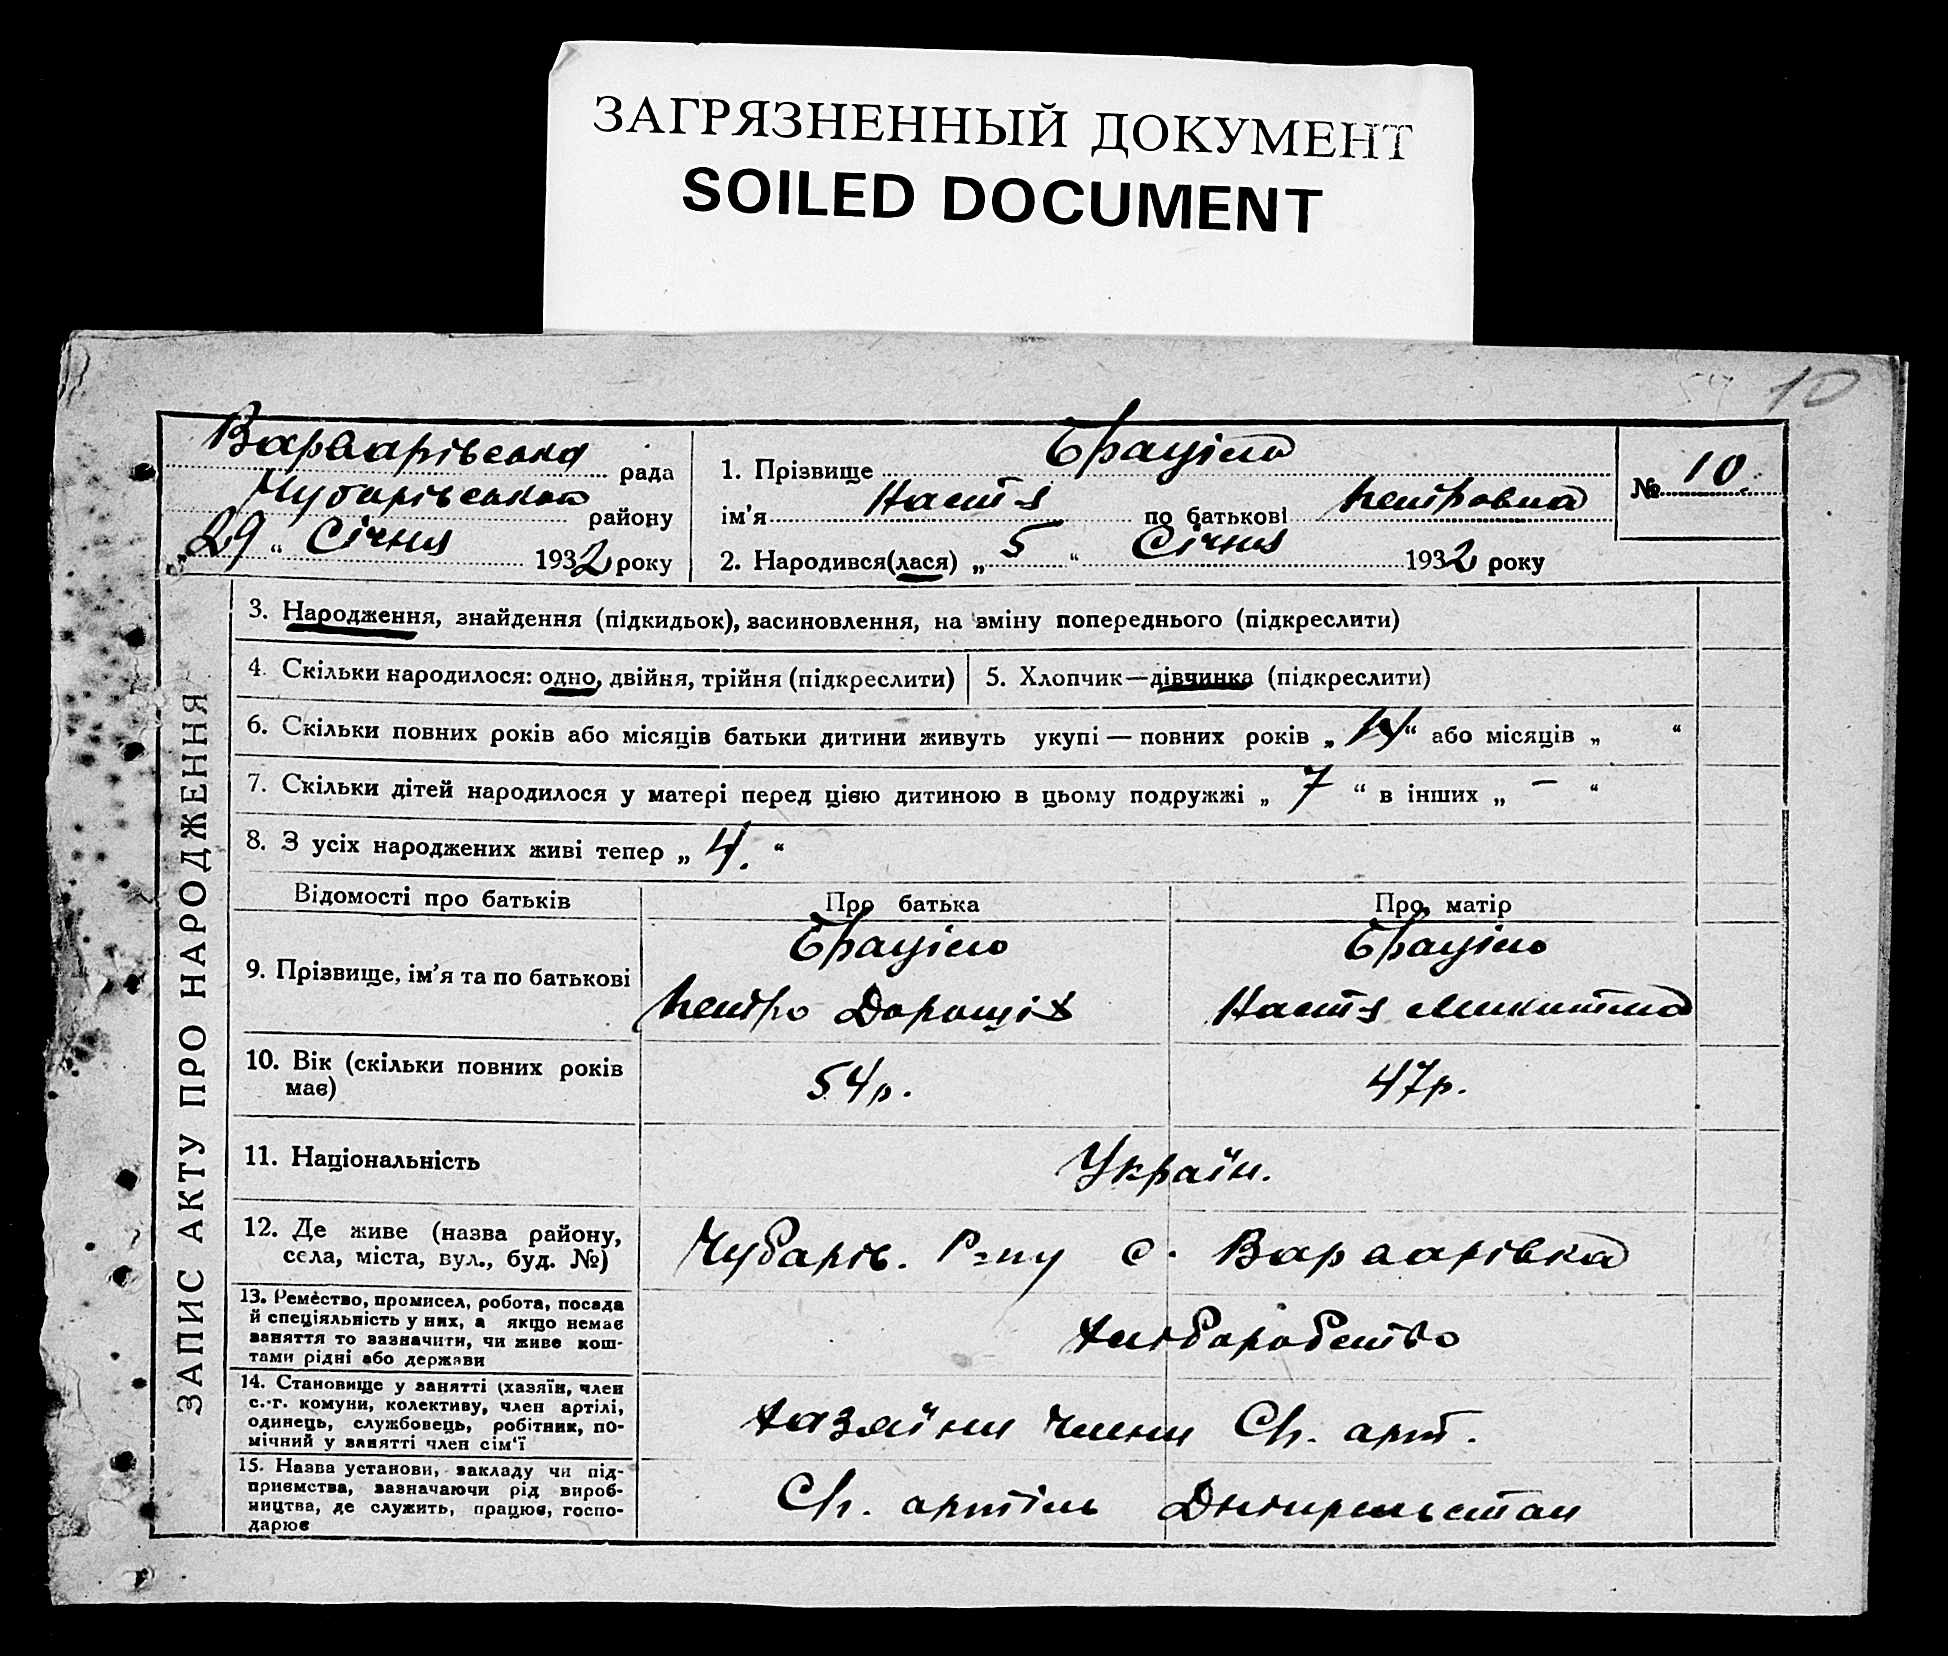 ЗАГРЯЗНЕННЫЙ ДОКУМЕНТ
SOILED DOCUMENT
10
Варварівська рада
Чубарівського району
„29“ Січня 1932 року
1. Прізвище
ім'я Настя по батькові Петровна
2. Народився(лася) „5“ Січня 1932 року
№ 10
ЗАПИС АКТУ ПРО НАРОДЖЕННЯ
3. Народження, знайдення (підкидьок), засиновлення, на зміну попереднього (підкреслити)
4. Скільки народилося: одно, двійня, трійня (підкреслити)
5. Хлопчик—дівчинка (підкреслити)
6. Скільки повних років або місяців батьки дитини живуть укупі — повних років „ “ або місяців „ “
7. Скільки дітей народилося у матері перед цією дитиною в цьому подружжі „ 7 “ в інших „ — “
8. З усіх народжених живі тепер „ 4. “
Відомості про батьків
Про батька
Про матір
9. Прізвище, ім'я та по батькові
Петро
Настя Микитина
10. Вік (скільки повних років має)
54 р.
47 р.
11. Національність
Україн.
12. Де живе (назва району,
села, міста, вул., буд. №)
Чубарів. Р-ну с. Варварівка
13. Ремество, промисел, робота, посада
й спеціяльність у них, а якщо немає
заняття то зазначити, чи живе кош-
тами рідні або держави
Хліборобство
14. Становище у занятті (хазяїн, член
с.-г. комуни, колективу, член артілі,
одинець, службовець, робітник, по-
мічний у занятті член сім'ї
Хазяїни члени Сh. арт.
15. Назва установи, закладу чи під-
приємства, зазначаючи рід вироб-
ництва, де служить, працює, госпо-
дарює
Сh. артіль Дніпрельстан